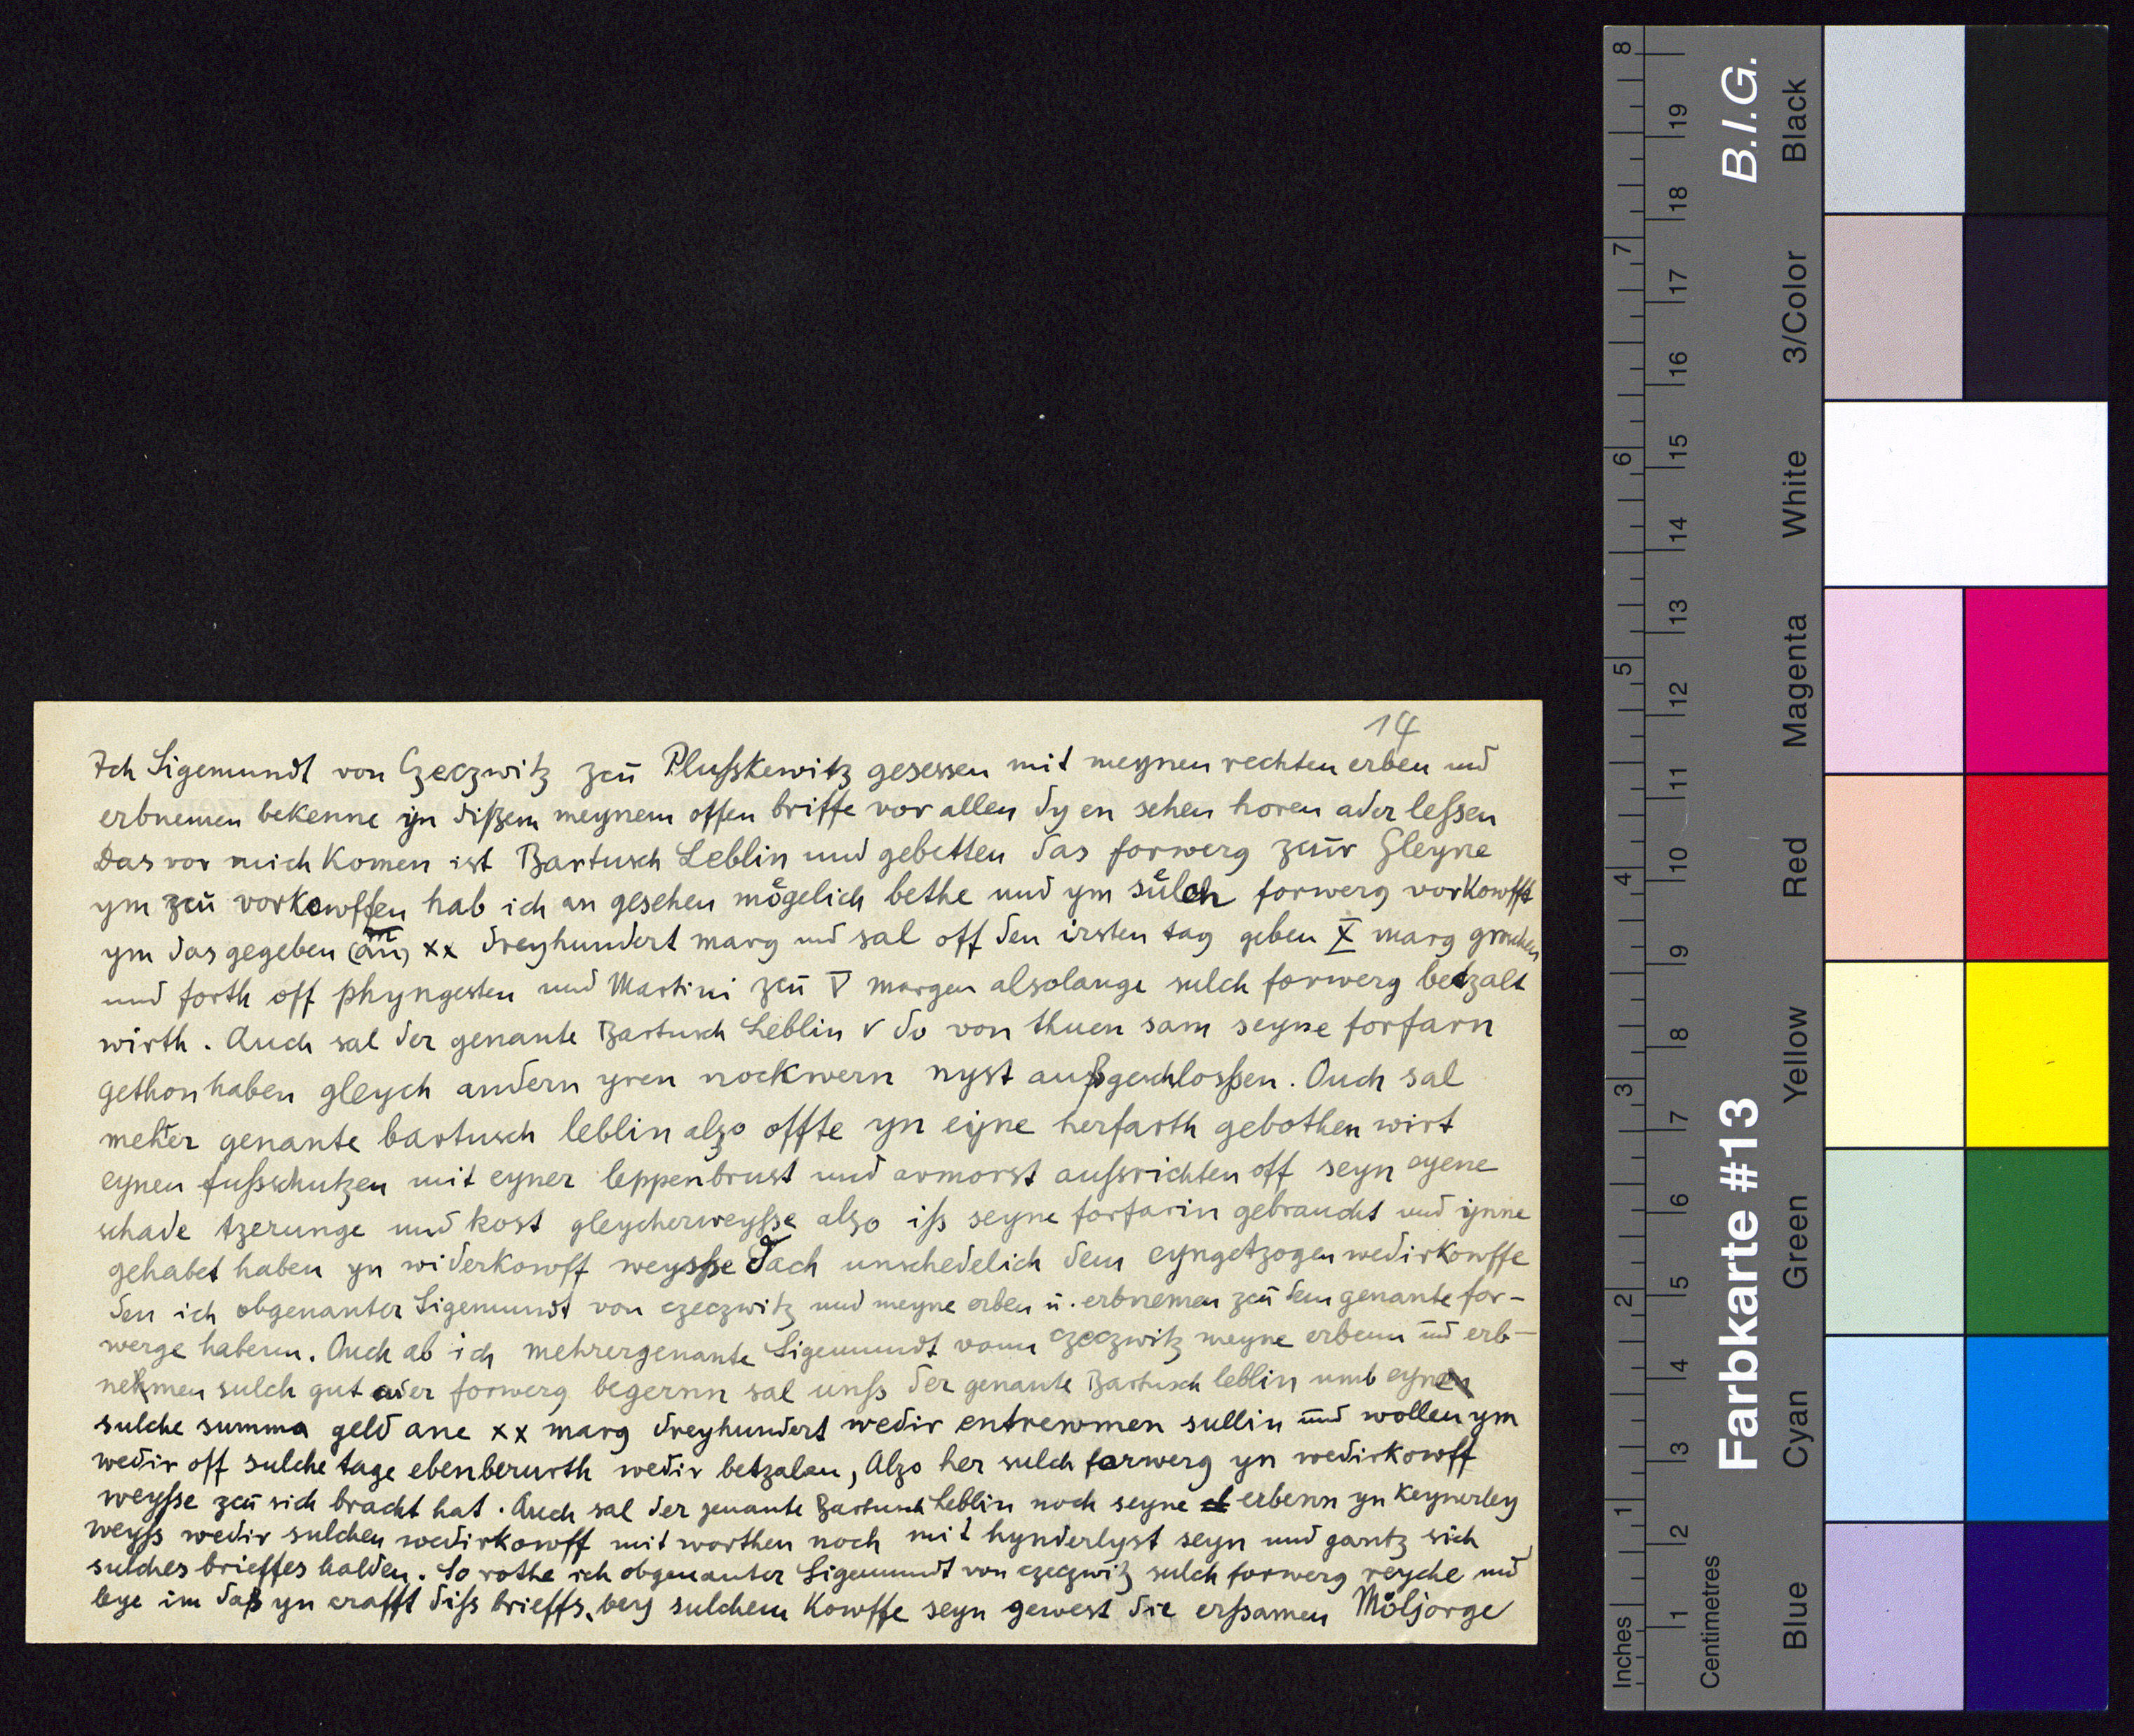 14
Ich Sigemundt von Czeczwitz zcu̅ Plusskewitz gesessen mit meynen rechten erben und
erbnemen bekenne ÿn dißem meynem offen briffe vor allen dy en sehen horen ader lessen
Das vor mich komen ist Bartusch Leblin und gebetten das forwerg zcu̅r Gleyne
ym zcu̅ vorkowffen hab ich an gesehen moͤgelich bethe und ym suͤlch forwerg vorkowfft
ym das gegeben xx dreyhundert marg und sal off den irsten tag geben X marg groschen
und forth off phyngesten und Martini zcu̅ V margen alsolange sulch forwerg betzalt
wirth. Auch sal der genante Bartusch Leblin do von thuen sam seyne forfarn
gethon haben gleych andern yren nockwern nyst außgeschloßen. Ouch sal
meher genante bartusch leblin alzo offte yn eyne herfarth gebothen wirt
eynen fussschutzen mit eyner leppenbrust und armorst aussrichten off seyn eyene
schade tzerunge und kost gleycherweysse alzo iss seyne forfarin gebraucht und ÿnne
gehabet haben yn widerkowff weyße dach unschedelich dem eyngetzogen wedirkowffe
den ich obgenanter Sigemundt von czeczwitz und meyne erben u̅. erbnemen zcu̅ dem genante for-
werge habenn. Ouch ab ich mehrergenante Sigemundt vonn czeczwitz meyne erbenn und erb-
nehmen sulch gut ader forwerg begernn sal unss der genante Bartusch leblin umb eyne
sulche summa geld ane xx marg dreyhundert wedir entrewmen sullin und wollen ym
wedir off sulche tage ebenberurth wedir betzalan, Alzo her sulch forwerg yn wedirkowff
weysse zcu̅ sich bracht hat. Auch sal der genante Bartusch Leblin noch seyne erbenn yn keynerley
weyss wedir sulchen wedirkowff mit worthen noch mit hynderlyst seyn und gantz sich
sulches brieffes halden. So rothe ich obgenanter Sigemundt von czeczwitz sulch forwerg reyche und
leye im daß yn crafft diss brieffs, bey sulchem kowffe seyn gewest die erßamen Moͤljorge
Inches
Centimetres
1 2 3 4 5 6 7 8
1 2 3 4 5 6 7 8 9 10 11 12 13 14 15 16 17 18 19
Farbkarte #13
B.I.G.
Blue
Cyan
Green
Yellow
Red
Magenta
White
3/Color
Black